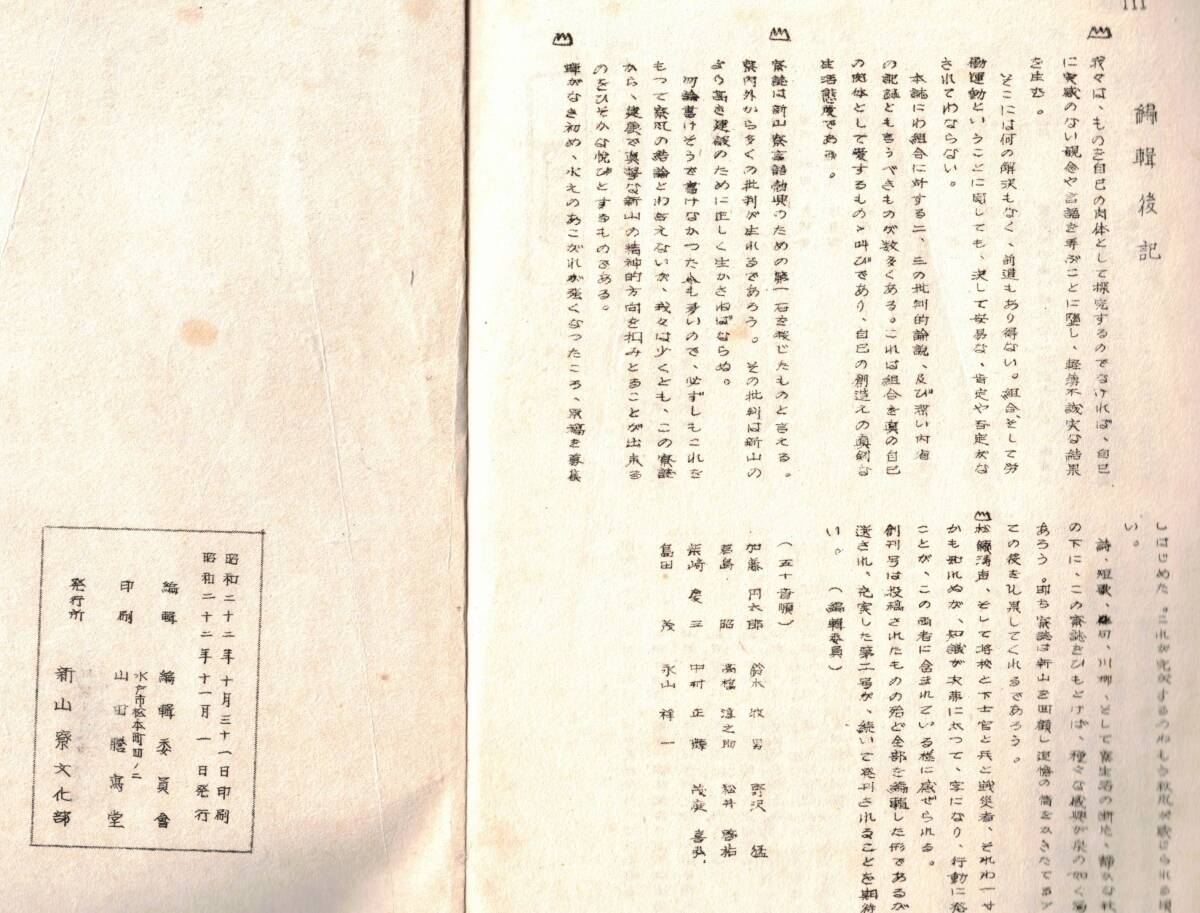 111
編輯後記
我々は、ものを自己の肉体として探究するのでなければ、自己
に実感のない観念や言語を弄ぶことに堕し、軽薄不誠実な結果
を生む。
そこには何の解決もなく、前進もあり得ない。組合、そして労
働運動ということに関しても、決して安易な、肯定や否定がな
されてわならない。
本誌にわ組合に対する二、三の批判的論説、及び深い内省
の記録とも言うべきものが数多くある。これは組合を真の自己
の肉体として愛するものゝ叫びであり、自己の創造えの真剣な
生活態度である。
寮誌は新山寮言語勃興のための第一石を投じたものと言える。
寮内外から多くの批判が生れるであろう。その批判は新山の
より高き建設のために正しく生かさねばならぬ。
勿論書けそうで書けなかった人も多いので、必ずしもこれを
もって寮風の結論とわ言えないが、我々は少くとも、この寮誌
から、健康で真摯な新山の精神的方向を掴みとることが出来る
のをひそかな悦びとするものである。
蝉がなき初め、水えのあこがれが強くなったころ、原稿を募集
しはじめた。これが完成するのわもう秋風が感じられる頃
い。
詩、短歌、俳句、川柳、そして寮生活の断片、静かな秋
の下に、この寮誌をひもとけば、種々な感興が泉の如く湧
あろう。即ち寮誌は新山を回顧し追憶の情をかきたてるア
ての役を礼果してくれるであろう。
松籟濤声、そして将校と下士官と兵と戦災者、それわ一寸
かも知れぬが、知識が次第に太って、字になり、行動に移
ことが、この両者に含まれている様に感ぜられる。
創刊号は投稿されたものの殆ど全部を編輯した形であるが
送され、充実した第二号が、続いて発刊されることを期待
い。 (編輯委員)
(五十音順)
加藤 円太郎 鈴木 政男 野沢 猛
君島 昭 高橋 淳之助 松井 啓祐
柴崎 慶三 中村 正輝 茂庭 喜弘
島田 茂 永山 祥一
昭和二十二年十月三十一日印刷
昭和二十二年十一月一日発行
編輯 編輯委員會
水戸市松本町四ノ二
印刷 山田謄寫堂
発行所 新山寮文化部